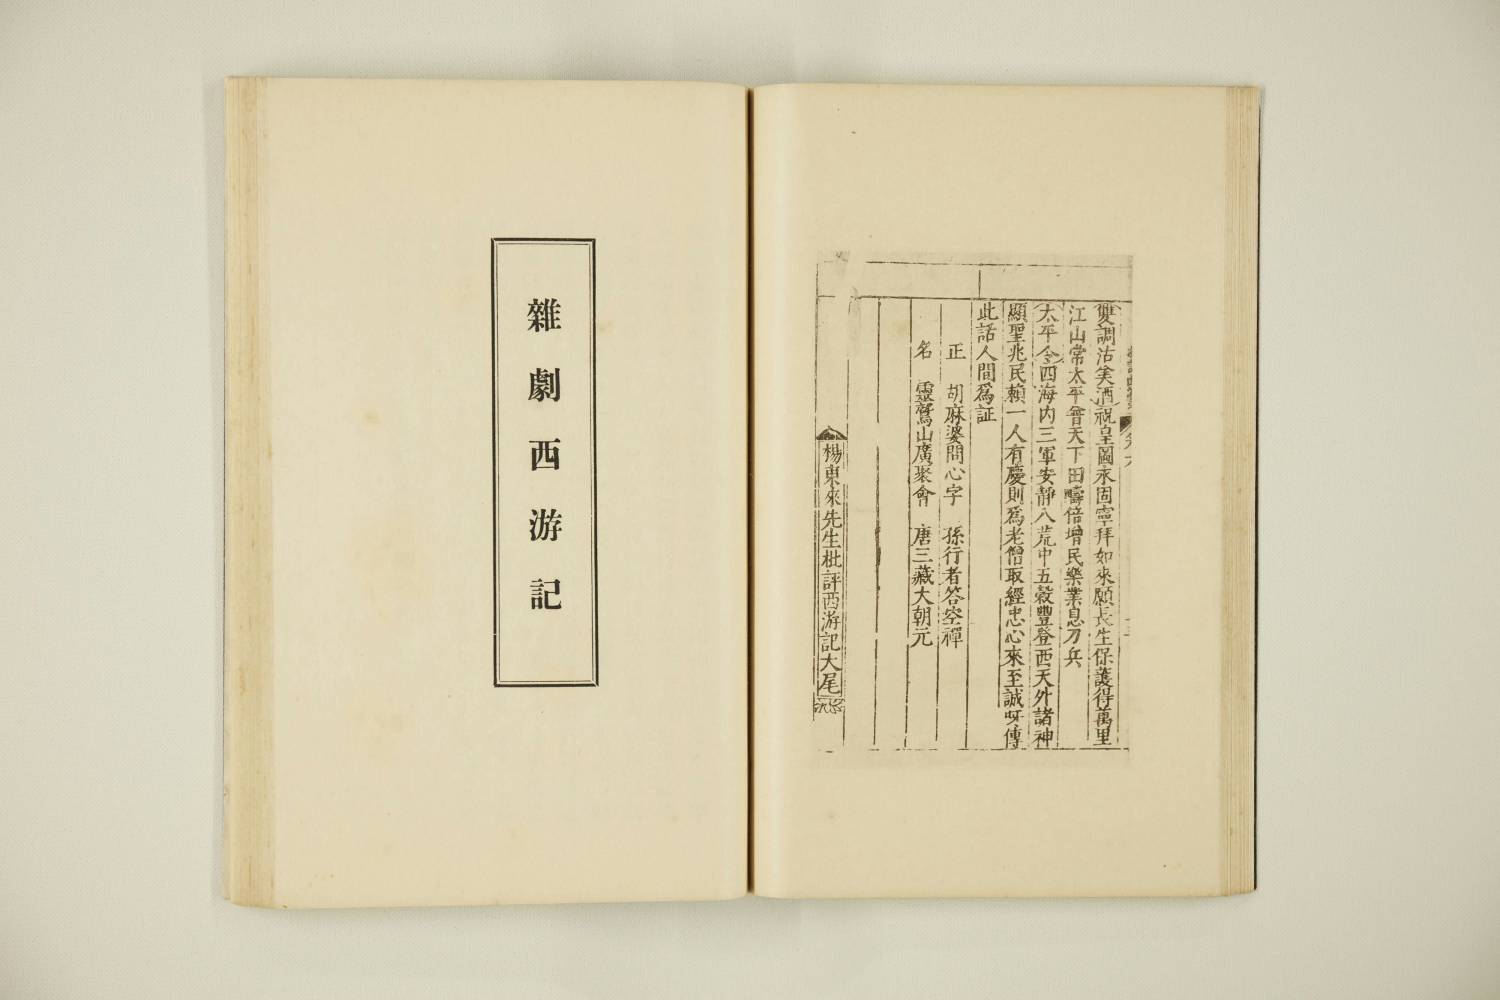 雙調沽美酒祝皇圖永固寧拜如來願長生保護得萬里
江山常太平普天下田疇倍增民樂業息刀兵
太平令四海内三軍安靜八荒中五穀豐登西天外諸神
顯聖兆民賴一人有慶則爲老僧取經忠心來至誠呀傳
此話人間爲証
正　胡麻婆問心字　孫行者答空禪
名　靈鷲山廣聚會　唐三藏大朝元
楊東來先生批評西游記大尾
雜劇西游記